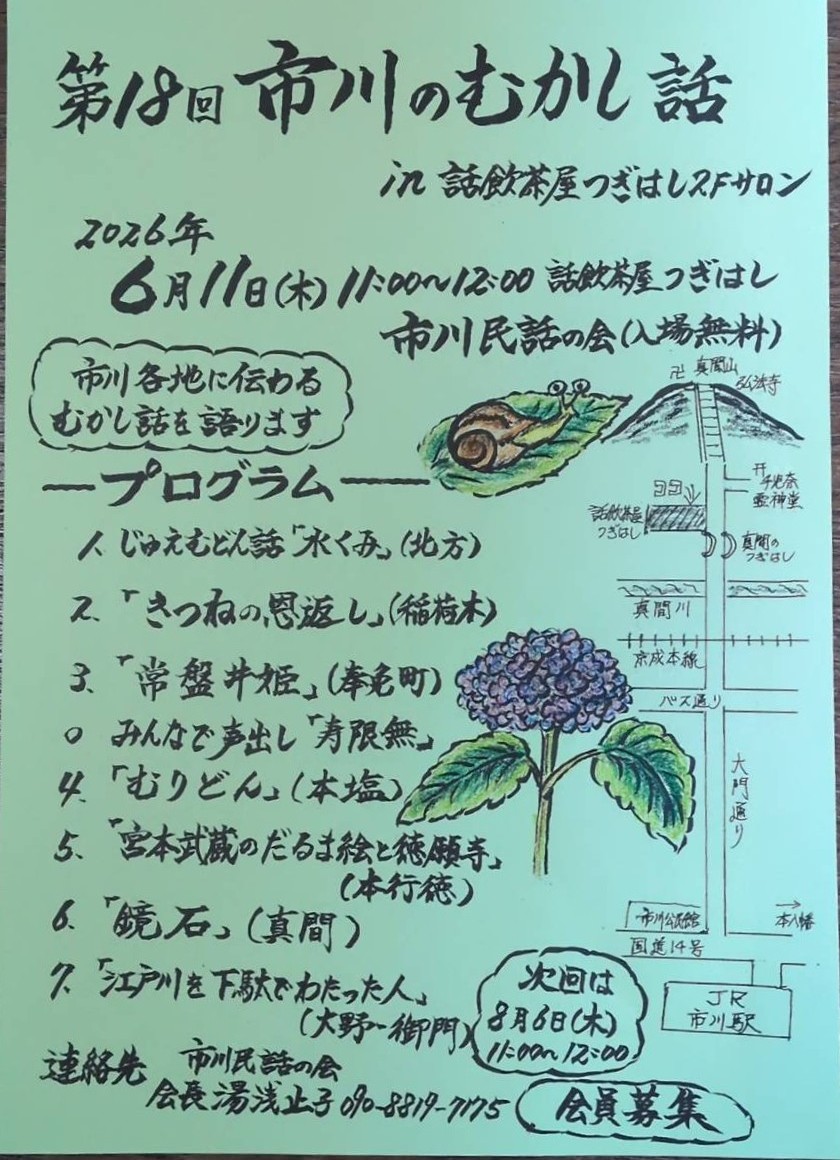 第18回 市川のむかし話
in 話飲茶屋つぎはし2Fサロン
2026年
6月11日(木) 11:00〜12:00 話飲茶屋つぎはし
市川民話の会(入場無料)
市川各地に伝わる
むかし話を語ります
ープログラムー
1. じゅえむどん話「水くみ」(北方)
2. 「きつねの恩返し」(稲荷木)
3. 「常盤井姫」(奉免町)
○ みんなで声出し「寿限無」
4. 「むりどん」(本塩)
5. 「宮本武蔵のだるま絵と徳願寺」
(本行徳)
6. 「鏡石」(真間)
7. 「江戸川を下駄でわたった人」
(大野〜御門)
次回は
8月6日(木)
11:00〜12:00
連絡先 市川民話の会
会長 湯浅止子 090-8819-7175
会員募集
卍 真間山
弘法寺
手児奈
霊神堂
ココ
話飲茶屋
つぎはし
真間の
つぎはし
真間川
京成本線
バス通り
大門通り
市川公民館
→
本八幡
国道14号
JR
市川駅